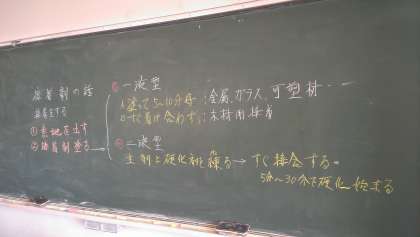 接着剤の話
接着をする
①素地を出す
②接着剤塗る
①一液型
塗って5〜10分待つ:金属、ガラス、可塑材・・・
すぐ着け合わす:木材用接着
②二液型
主剤と硬化剤を練る→すぐ接合する。
5分〜30分で硬化始まる